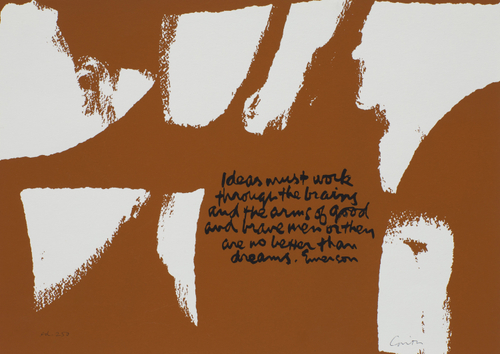 Ideas must work
through the brains
and the arms of good
and brave men or they
are no better than
dreams. Emerson